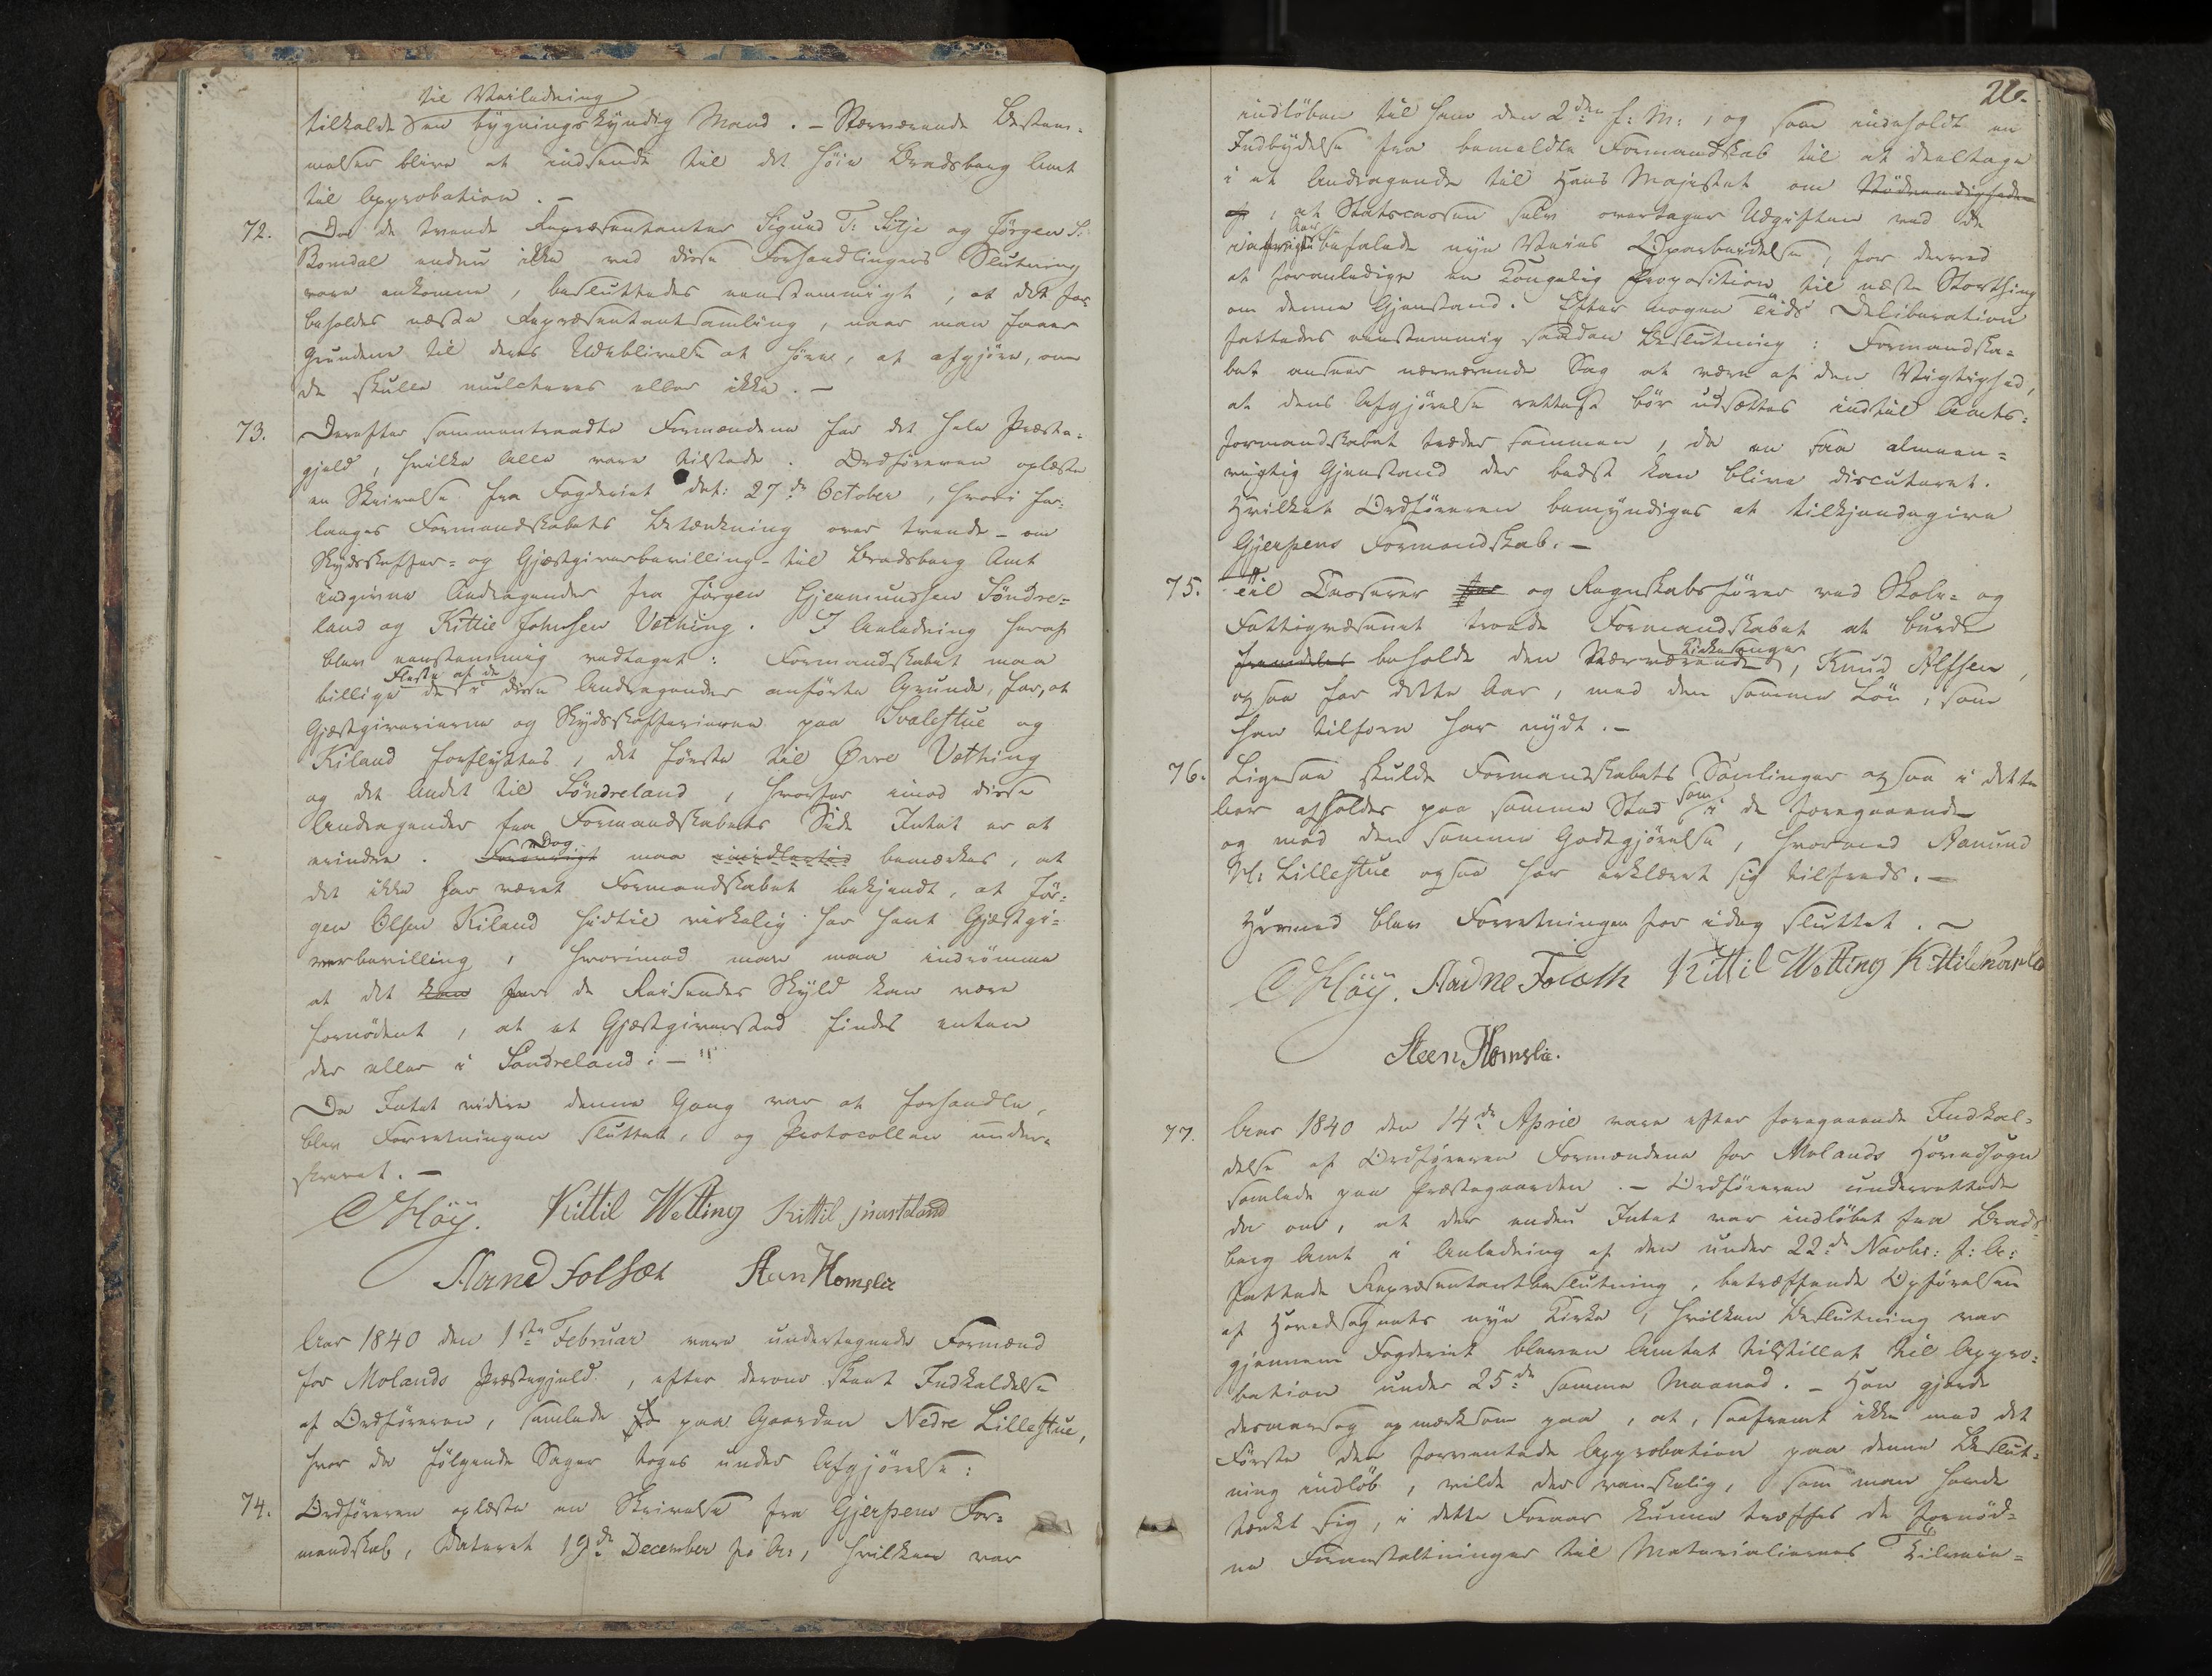 til Veiledning
tilkalde en bygningskyndig Mand. – Nærværende Bestem-
melser blive at indsende til det høie Bradsberg Amt
til Approbation. –
72. Da de tvende Repræsentanter Sigurd T: Silje og Jørgen S:
Bomdal endnu ikke ved disse Forhandlingers Slutning
vare ankomne, besluttedes eenstemmigt, at det for-
beholdes næste Repræsentantsamling, naar man faaer
Grundene til deres Udeblivelse at høre, at afgjøre, om
de skulle mulcteres eller ikke. –
73. Derefter sammentraadte Formændene for det hele Præste-
gjeld, hvilke Alle vare tilstede. Ordføreren oplæste
en Skrivelse fra Fogderiet dat: 27de October, hvori for-
langes Formandskabets Betænkning over tvende – om
Skydsskaffer- og Gjæstgiverbevilling – til Bradsberg Amt
indgivne Andragender fra Jørgen Gjermundsen Söndre-
land og Kittil Johnsen Vething. I Anledning heraf
blev eenstemmig vedtaget: Formandskabet maa
fleste af de
billige de i disse Andragender anførte Grunde, for, at
Gjæstgiverierne og Skydsskafferierne paa Svalestue og
Kiland forflyttes, det første til Øvre Vething
og det Andet til Söndreland, hvorfor imod disse
Andragender fra Formandskabets Side Intet er at
Dog
erindre. Forøvrigt maa imidlertid bemærkes, at
det ikke har været Formandskabet bekjendt, at Jör-
gen Olsen Kiland hidtil virkelig har havt Gjæstgi-
verbevilling, hvorimod man maa indrömme
at det kan for de Reisendes Skyld kan være
fornödent, at et Gjæstgiversted findes enten
der eller i Söndreland: – "
Da Intet videre denne Gang var at forhandle,
blev Forretningen sluttet, og Protocollen under-
skrevet. –
C Höÿ. Kittil Wetting Kittil
Aane Folsæt Steen Homslie
Aar 1840 den 1ste Februar vare undertegnede Formænd
for Molands Præstegjeld, efter derom skeet Indkaldelse
af Ordføreren, samlede paa Gaarden Nedre Lillestue,
hvor da følgende Sager toges under Afgjörelse:
74. Ordføreren oplæste en Skrivelse fra Gjerpens For-
mandskab, dateret 19de December f: A:, hvilken var
26.
indlöben til ham den 2den f: M:, og som indeholdt en
Indbydelse fra bemeldte Formandskab til at deeltage
i et Andragende til Hans Majestæt om Nödvendigheden
af, at Statscassen selv overtager Udgiften ved de
befalede nye Veies Oparbeidelse, for derved
at foranledige en Kongelig Proposition til næste Storthing
om denne Gjenstand. Efter nogen Tids Deliberation
fattedes eenstemmig saadan Beslutning: Formandska-
bet anseer nærværende Sag at være af den Vigtighed,
at dens Afgjörelse rettest bör udsættes indtil Amts-
formandskabet træder sammen, da en saa almeen-
vigtig Gjenstand der bedst kan blive discuteret.
Hvilket Ordføreren bemyndiges at tilkjendegive
Gjerpens Formandskab. –
75. Til Casserer for og Regnskabsfører ved Skole- og
Fattigvæsenet troede Formandskabet at burde
Kirkesanger
fremdeles beholde den Nærværende, Knud Alfsen,
ogsaa for dette Aar, med den samme Lön, som
han tilforn har nydt. –
76. Ligesaa skulde Formandskabets Samlinger ogsaa i dette
Aar afholdes paa samme Sted som i de foregaaende
og mod den samme Godtgjörelse, hvormed Aanund
N: Lillestue ogsaa har erklæret sig tilfreds. –
Hermed blev Forretningen for idag sluttet. –
C Höÿ. Aadne Kittil Wetting Kittil
Steen Homslie.
77. Aar 1840 den 14de April vare efter foregaaende Indkal-
delse af Ordføreren Formændene for Molands Hovedsogn
samlede paa Præstegaarden. – Ordføreren underrettede
da om, at der endnu Intet var indlöbet fra Brads-
berg Amt i Anledning af den under 22de Novbr: f: A:
fattede Repræsentantbeslutning, betræffende Opførelsen
af Hovedsognets nye Kirke, hvilken Beslutning var
gjennem Fogderiet bleven Amtet tilstillet til Appro-
bation under 25de samme Maaned. – Han gjorde
derhos opmærksom paa, at, saafremt ikke med det
Første den forventede Approbation paa denne Beslut-
ning indlöb, vilde der vanskelig, som man havde
tænkt sig, i dette Foraar kunne træffes de fornöd-
ne Foranstaltninger til Materialiernes Tilveie-